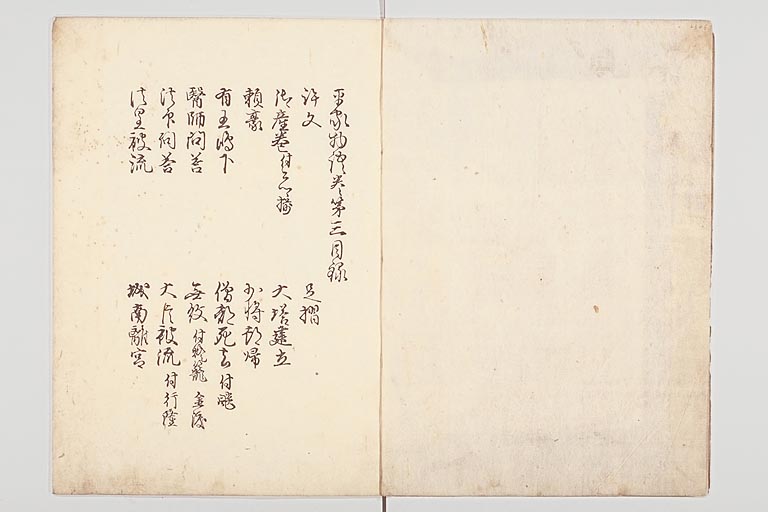 平家物語巻第三目録
許文
足摺
御産巻付公卿揃
大塔建立
頼豪
少将都帰
有王嶋下
僧都死去付飈
醫師問答
無紋付燈籠 金渡
法印問答
大臣被流付行隆
法皇被流
城南離宮